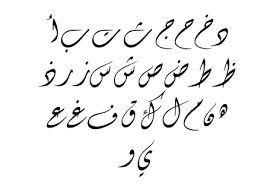 أ ب ت ث ج ح خ د
ذ ر ز س ش ص ض ط ظ
ع غ ف ق ك ل م ن ه
و ي